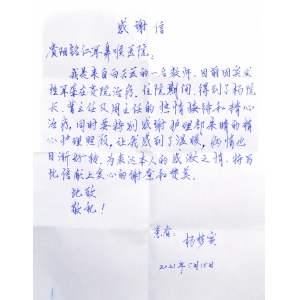 感谢信
贵阳铭仁耳鼻喉医院：
我是来自白云区的一名教师，因前因突发
性耳聋在贵院治疗，住院期间，得到了杨院
长、曾主任及周主任的热情接待和精心
治疗，同时要特别感谢护理部集晴的精
心护理照顾，让我感到了温暖，病情也
日渐好转，为表达本人的感激之情，特写
此信献上衷心的谢意和赞美。
此致
敬礼！
患者：
杨梦寅
2021年5月18日